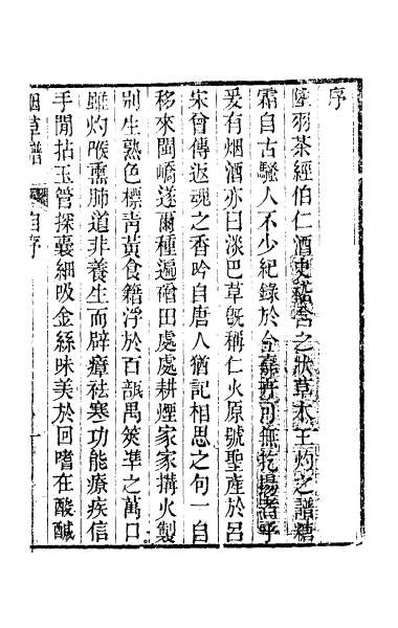 序
陸羽茶經伯仁酒史嵇含之狀草木王灼之譜糖
霜自古騷人不少紀錄於今嘉卉可無抡揚者乎
爰有烟酒亦曰淡巴草旣稱仁火原號聖産於呂
宋曾傳返魂之香吟自唐人猶記相思之句一自
移來閩嶠遂爾種遍磳田處處耕煙家家搆火製
别生熟色標靑黃食籍浮於百瓻禺筴凖之萬口
雖灼喉熏肺道非養生而辟瘴祛寒功能療疾信
手閒拈玉管探囊細吸金絲味美於回嗜在酸醎
烟草譜 自序 一